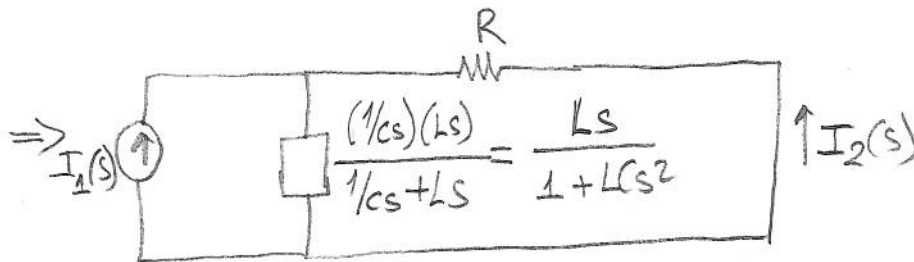 R
⇒ I₁(s) ↑ (1/cs)(Ls) / 1/cs+Ls = Ls / 1+LCs² ↑ I₂(s)